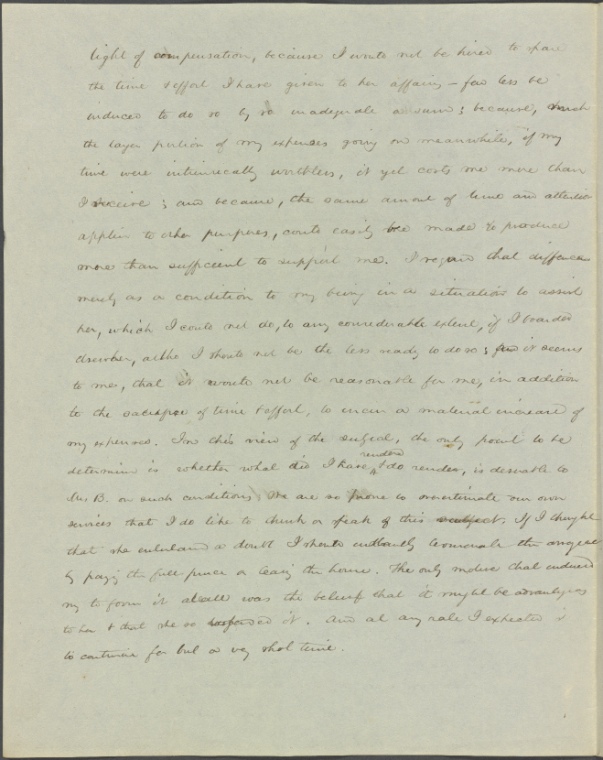 light of compensation, because I would not be hired to spare
the time & effort I have given to her affairs – far less be
induced to do so by so inadequate a sum; because,
the larger portion of my expenses going on meanwhile, if my
time were intrinsically worthless, it yet costs me more than
I receive; and because, the same amount of time and attention
applied to other purposes, could easily be made to produce
more than sufficient to support me. I regard that difference
merely as a condition to my being in a situation to assist
her, which I could not do, to any considerable extent, if I boarded
elsewher, altho I should not be the less ready to do so; it seems
to me, that it would not be reasonable for me, in addition
to the sacrifice of time & effort, to incur a material increase of
my expenses. In this view of the subject, the only point to be
determined is whether what did I have rendered & do render, is desirable to
Mrs B. on such conditions. We are so prone to overestimate our own
services that I do like to think or speak of this subject. If I thought
that she entertained a doubt I should instantly terminate the
by paying the full price or leaving the house. The only motive that induced
my to form it at all was the belief that it might be advantageous
to her & that she so supposed it. And at any rate I expected it
to continue for but a very short time.